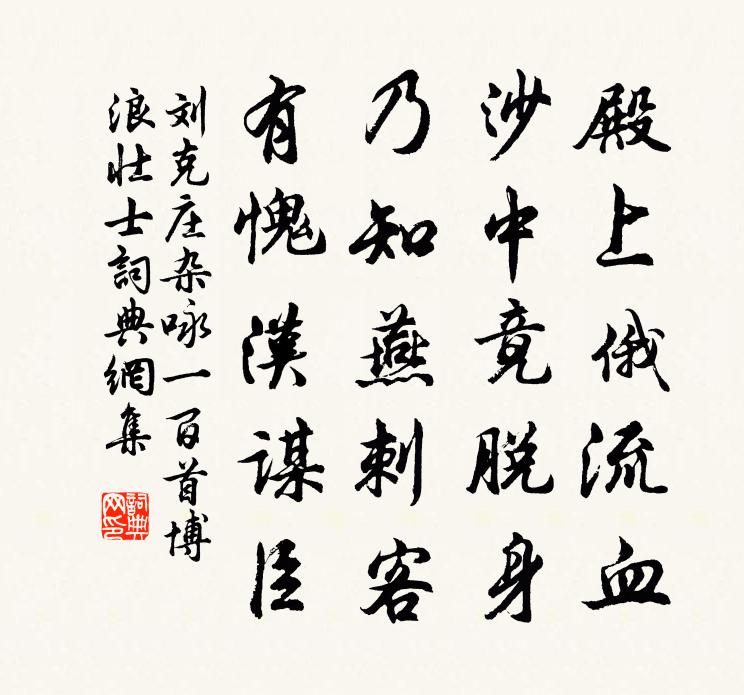 殿上俄流血
沙中竟脱身
乃知燕刺客
有愧漢謀臣
刘克庄杂咏一百首博
浪壮士詞典網集
詞典
网印